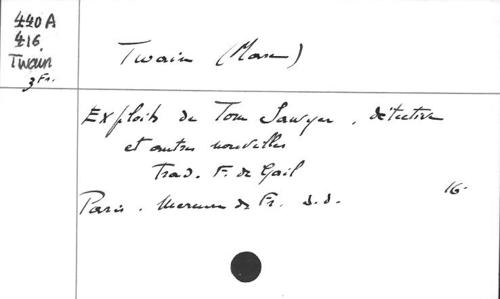 440A
416.
Twain
3 Fr.
Twain (Marc)
Exploits de Tom Sawyer, détective
et autres nouvelles
Trad. F. de Gail
Paris. Mercure de Fr. s.d.
16-